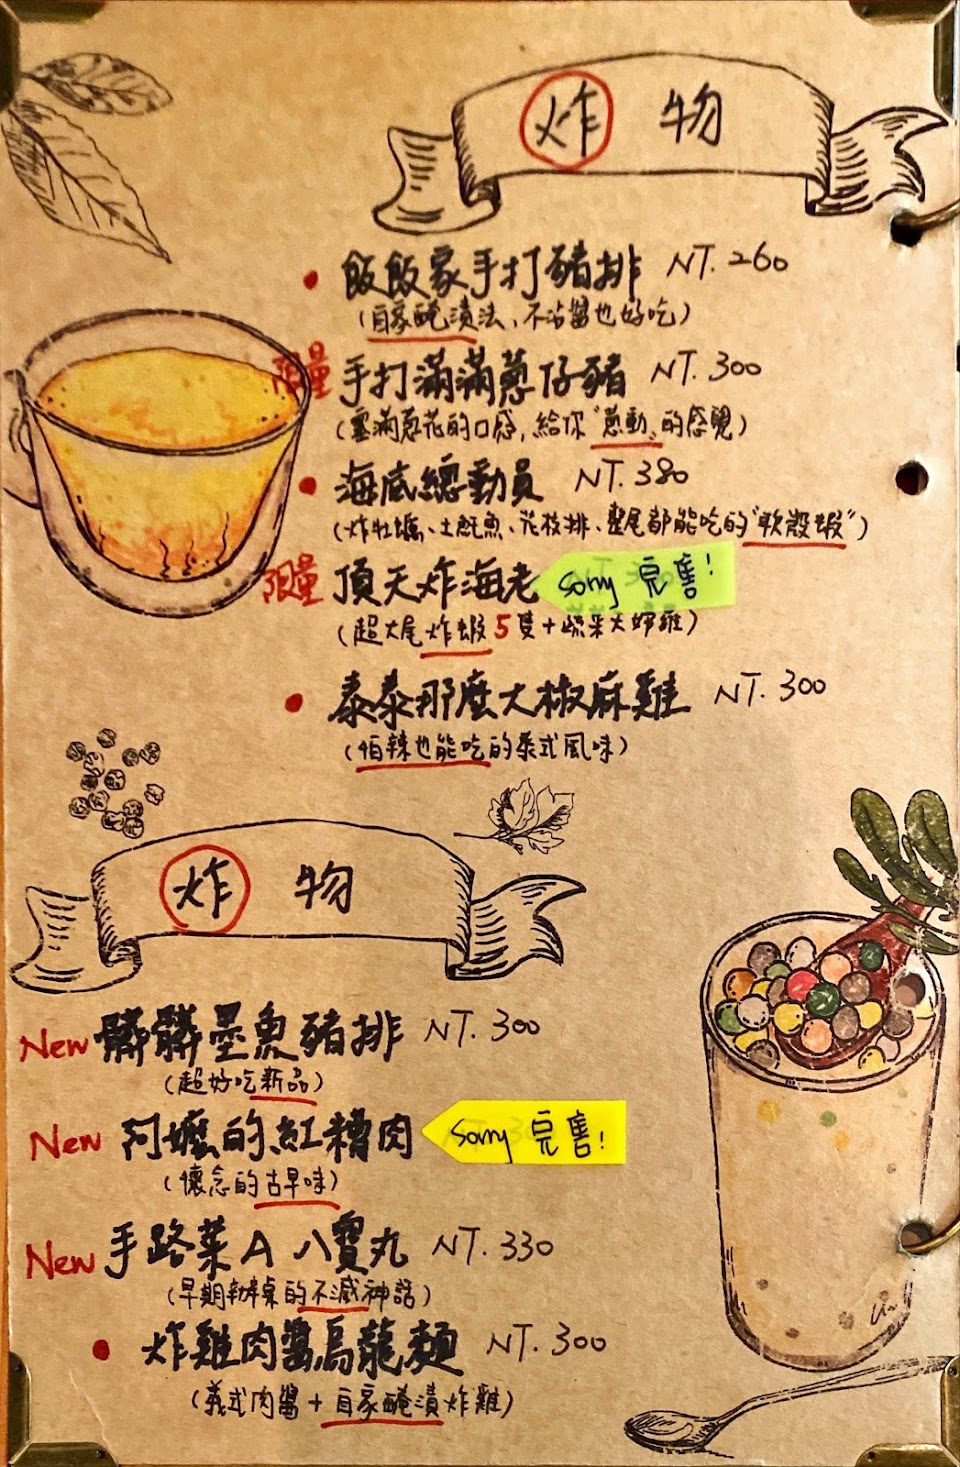 炸物
飯飯家手打豬排 NT. 260
(自家醃漬法、不沾醬也好吃)
限量 手打滿滿蔥仔豬 NT. 300
(塞滿蔥花的口感, 給你"蔥動"的感覺)
海底總動員 NT. 380
(炸牡蠣、土魠魚、花枝排、整尾都能吃的"軟殼蝦")
限量 頂天炸海老 sorry 完售!
(超大尾炸蝦5隻+蔬菜天婦羅)
泰泰那麼大椒麻雞 NT. 300
(怕辣也能吃的泰式風味)
炸物
New 髒髒墨魚豬排 NT. 300
(超好吃新品)
New 阿嬤的紅糟肉 sorry 完售!
(懷念的古早味)
New 手路菜A 八寶丸 NT. 330
(早期辦桌的不滅神話)
炸雞肉醬烏龍麵 NT. 300
(義式肉醬+自家醃漬炸雞)